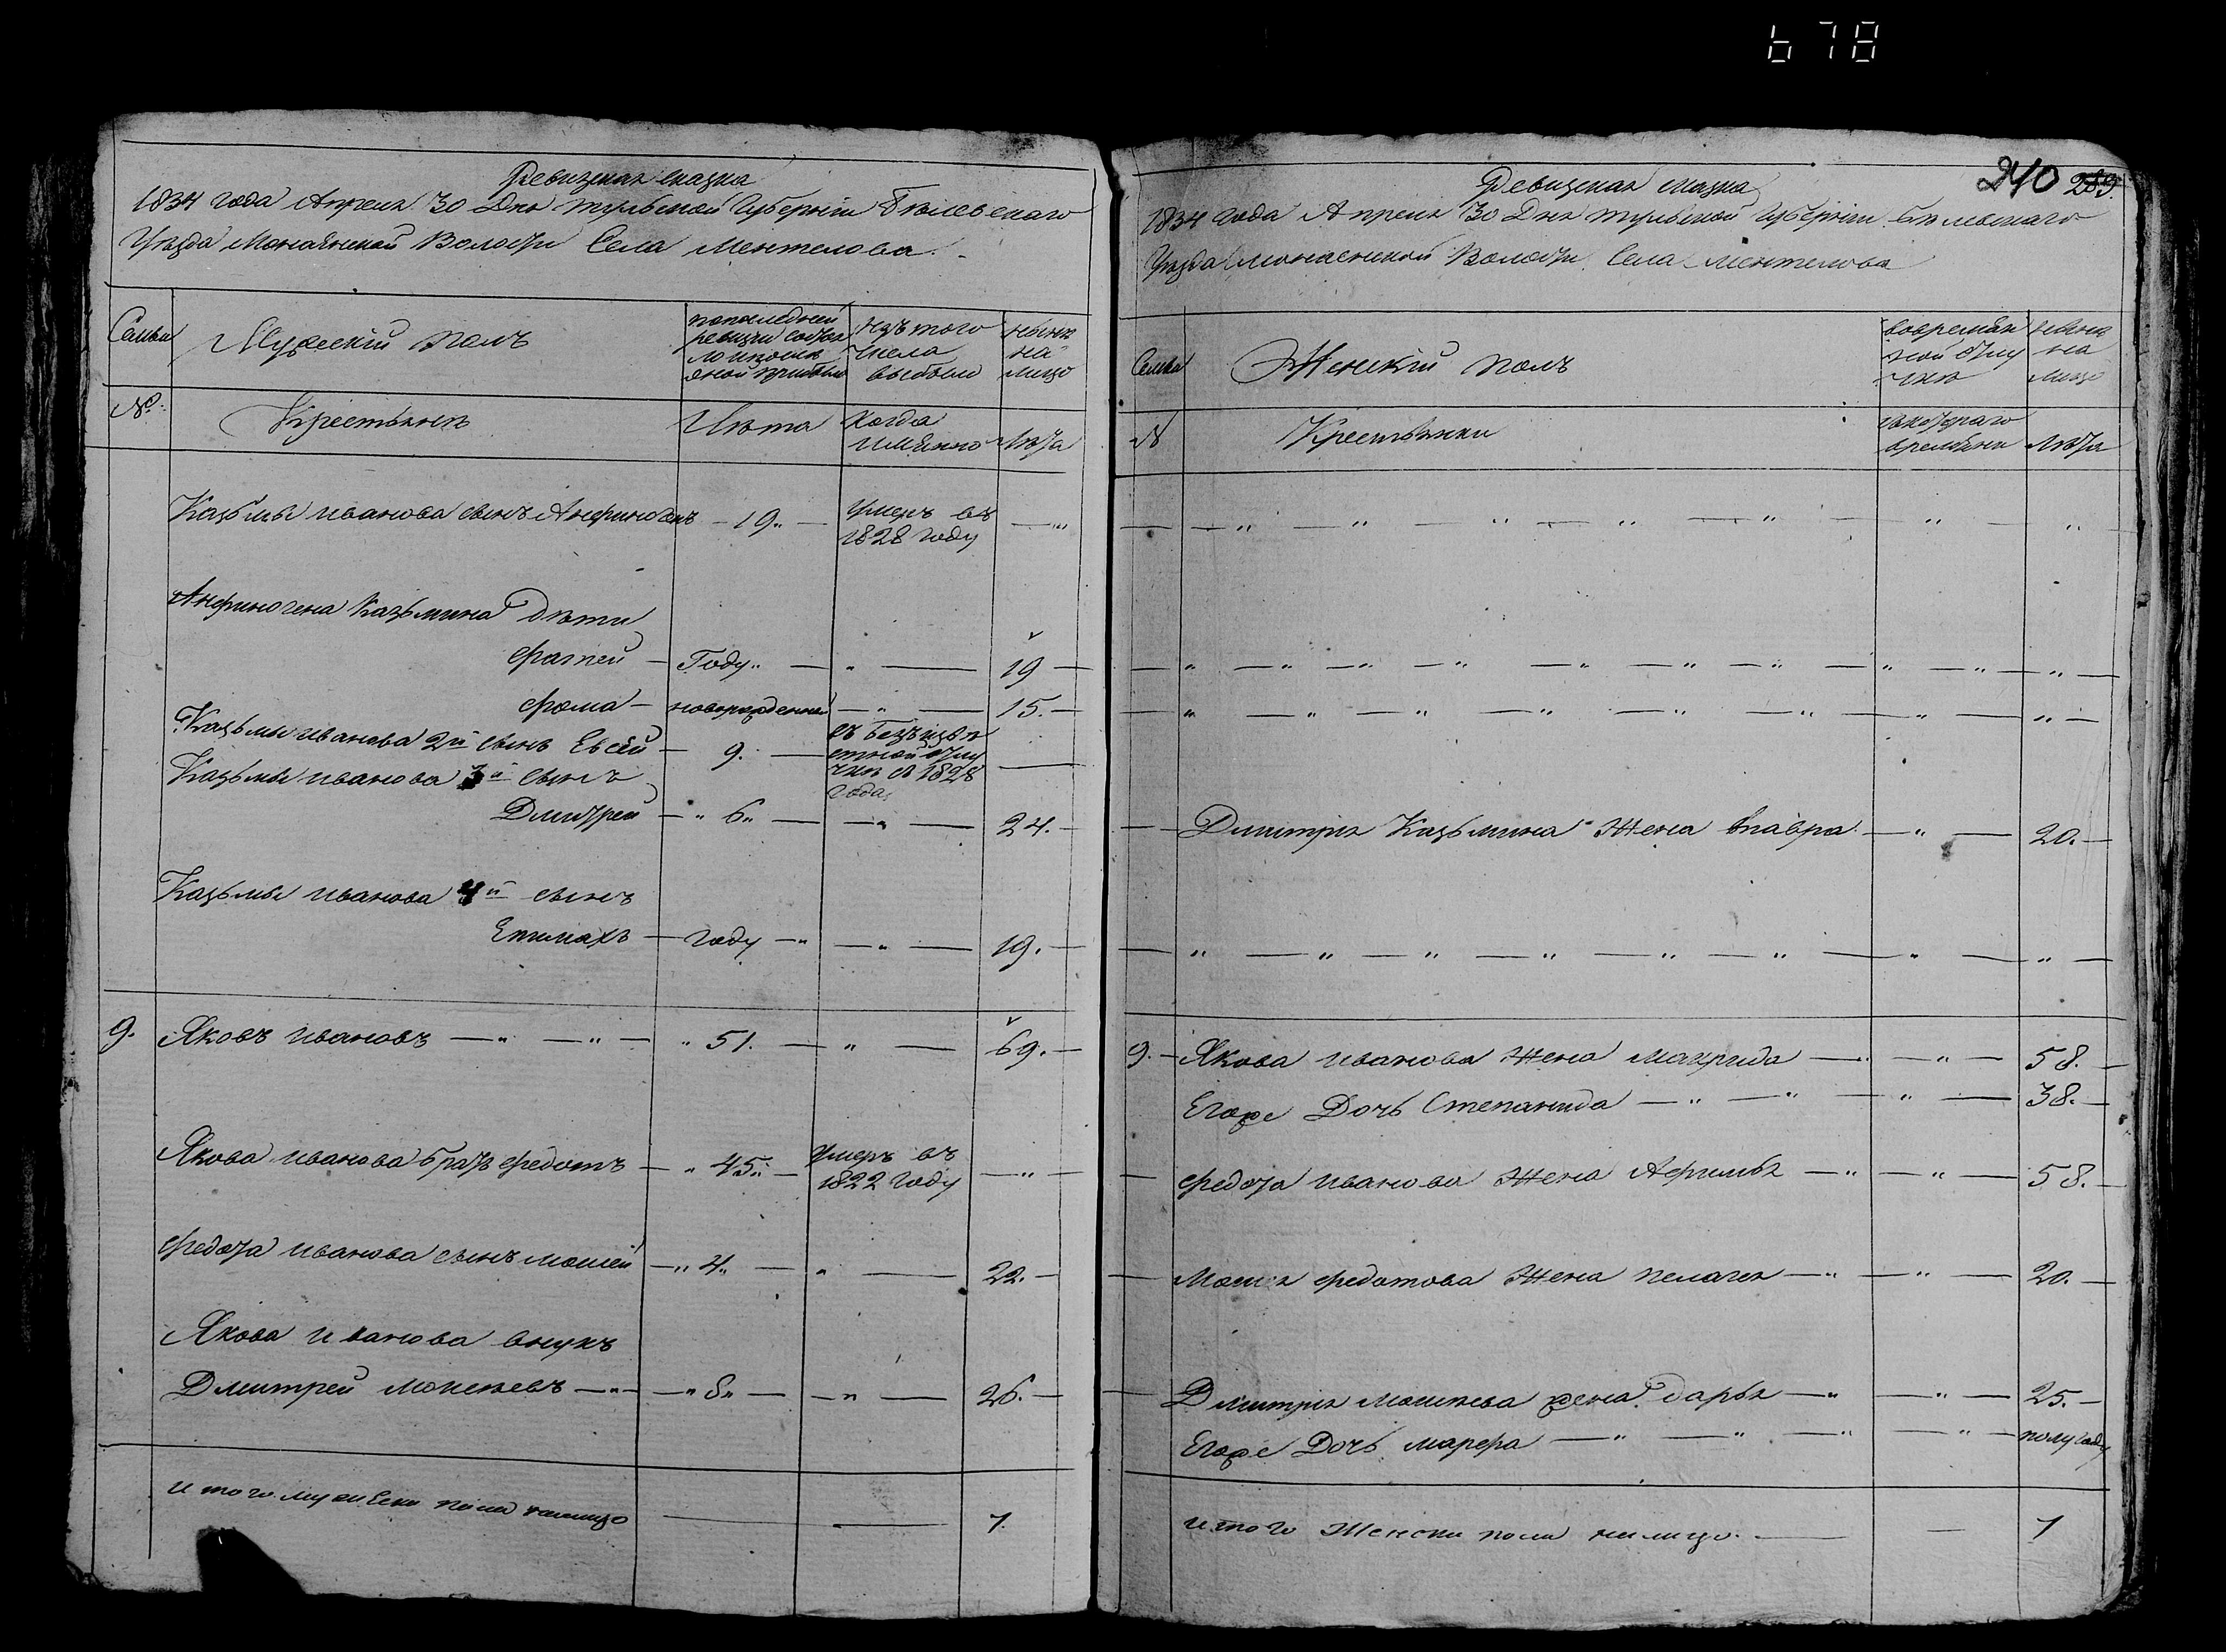 678
Ревизская сказка
1834 года Апреля 30 Дня тульской Губернiи Белевскаго
Уезда Монаенской Волости Села Ментелова
Семьи
Мужескiй полъ
попоследней
ревизiи состоя
ло и после
оной прибыло
изъ того
числа
выбыло
ныне
на
лицо
№
Крестьяне
Лета
Когда
имянно
Лета
Казьмы иванова сынъ Анфиногенъ — 19 — умеръ въ
1828 году
Анфиногена Казьмина Дети
фатей — Году — 19
фома — новорожденной — 15.
Казьмы иванова 2й сынъ Евсей — 9. — въ безъизве
стной отлу
чке съ 1828
года
Казьмы иванова 3й сынъ
Дмитрей — 6 — 24.
Казьмы иванова 4й сынъ
Епимахъ — году — 19.
9. Яковъ ивановъ — 51. — 69.
Якова иванова братъ федотъ — 45 — умеръ въ
1822 году
федота иванова сынъ мосей — 4 — 22.
Якова иванова внукъ
Дмитрей мосеевъ — 8 — 26.
итого мужеска пола налицо — 7.
240 289.
Ревизская сказка
1834 года Апреля 30 Дня тульской Губернiи Белевскаго
Уезда монаенской Волости Села ментелова
Семьи
Женскiй полъ
вовремян
ной отлу
чке
ныне
на
лицо
№
Крестьянки
скотораго
времяни
Лета
Дмитрiя Казьмина Жена мавра — 20.
9. Якова иванова Жена макрида — 58.
Егоже Дочь Степанида — 38.
федота иванова Жена Афимья — 58.
Мосея федотова Жена пелагея — 20.
Дмитрiя мосеева жена дарья — 25.
Егоже Дочь марфа — полугоду
итого Женска пола налицо. — 7